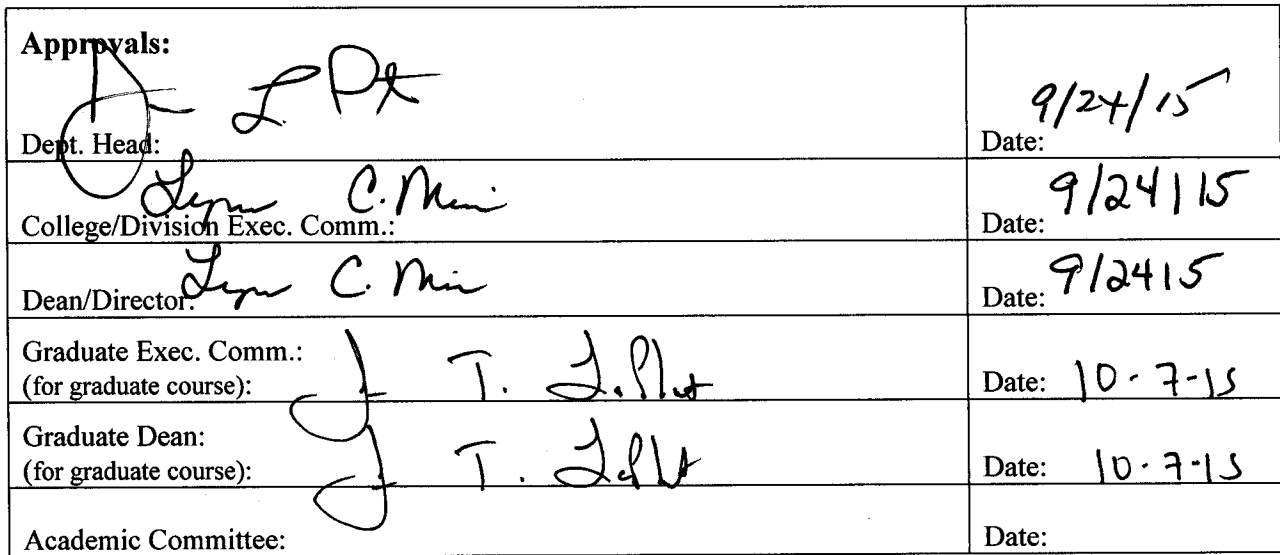 Approvals:
Dept. Head:
Date: 9/24/15
College/Division Exec. Comm.: C.
Date: 9/24/15
Dean/Director: C.
Date: 9/2415
Graduate Exec. Comm.:
(for graduate course): J T.
Date: 10-7-15
Graduate Dean:
(for graduate course): J T.
Date: 10-7-15
Academic Committee:
Date: